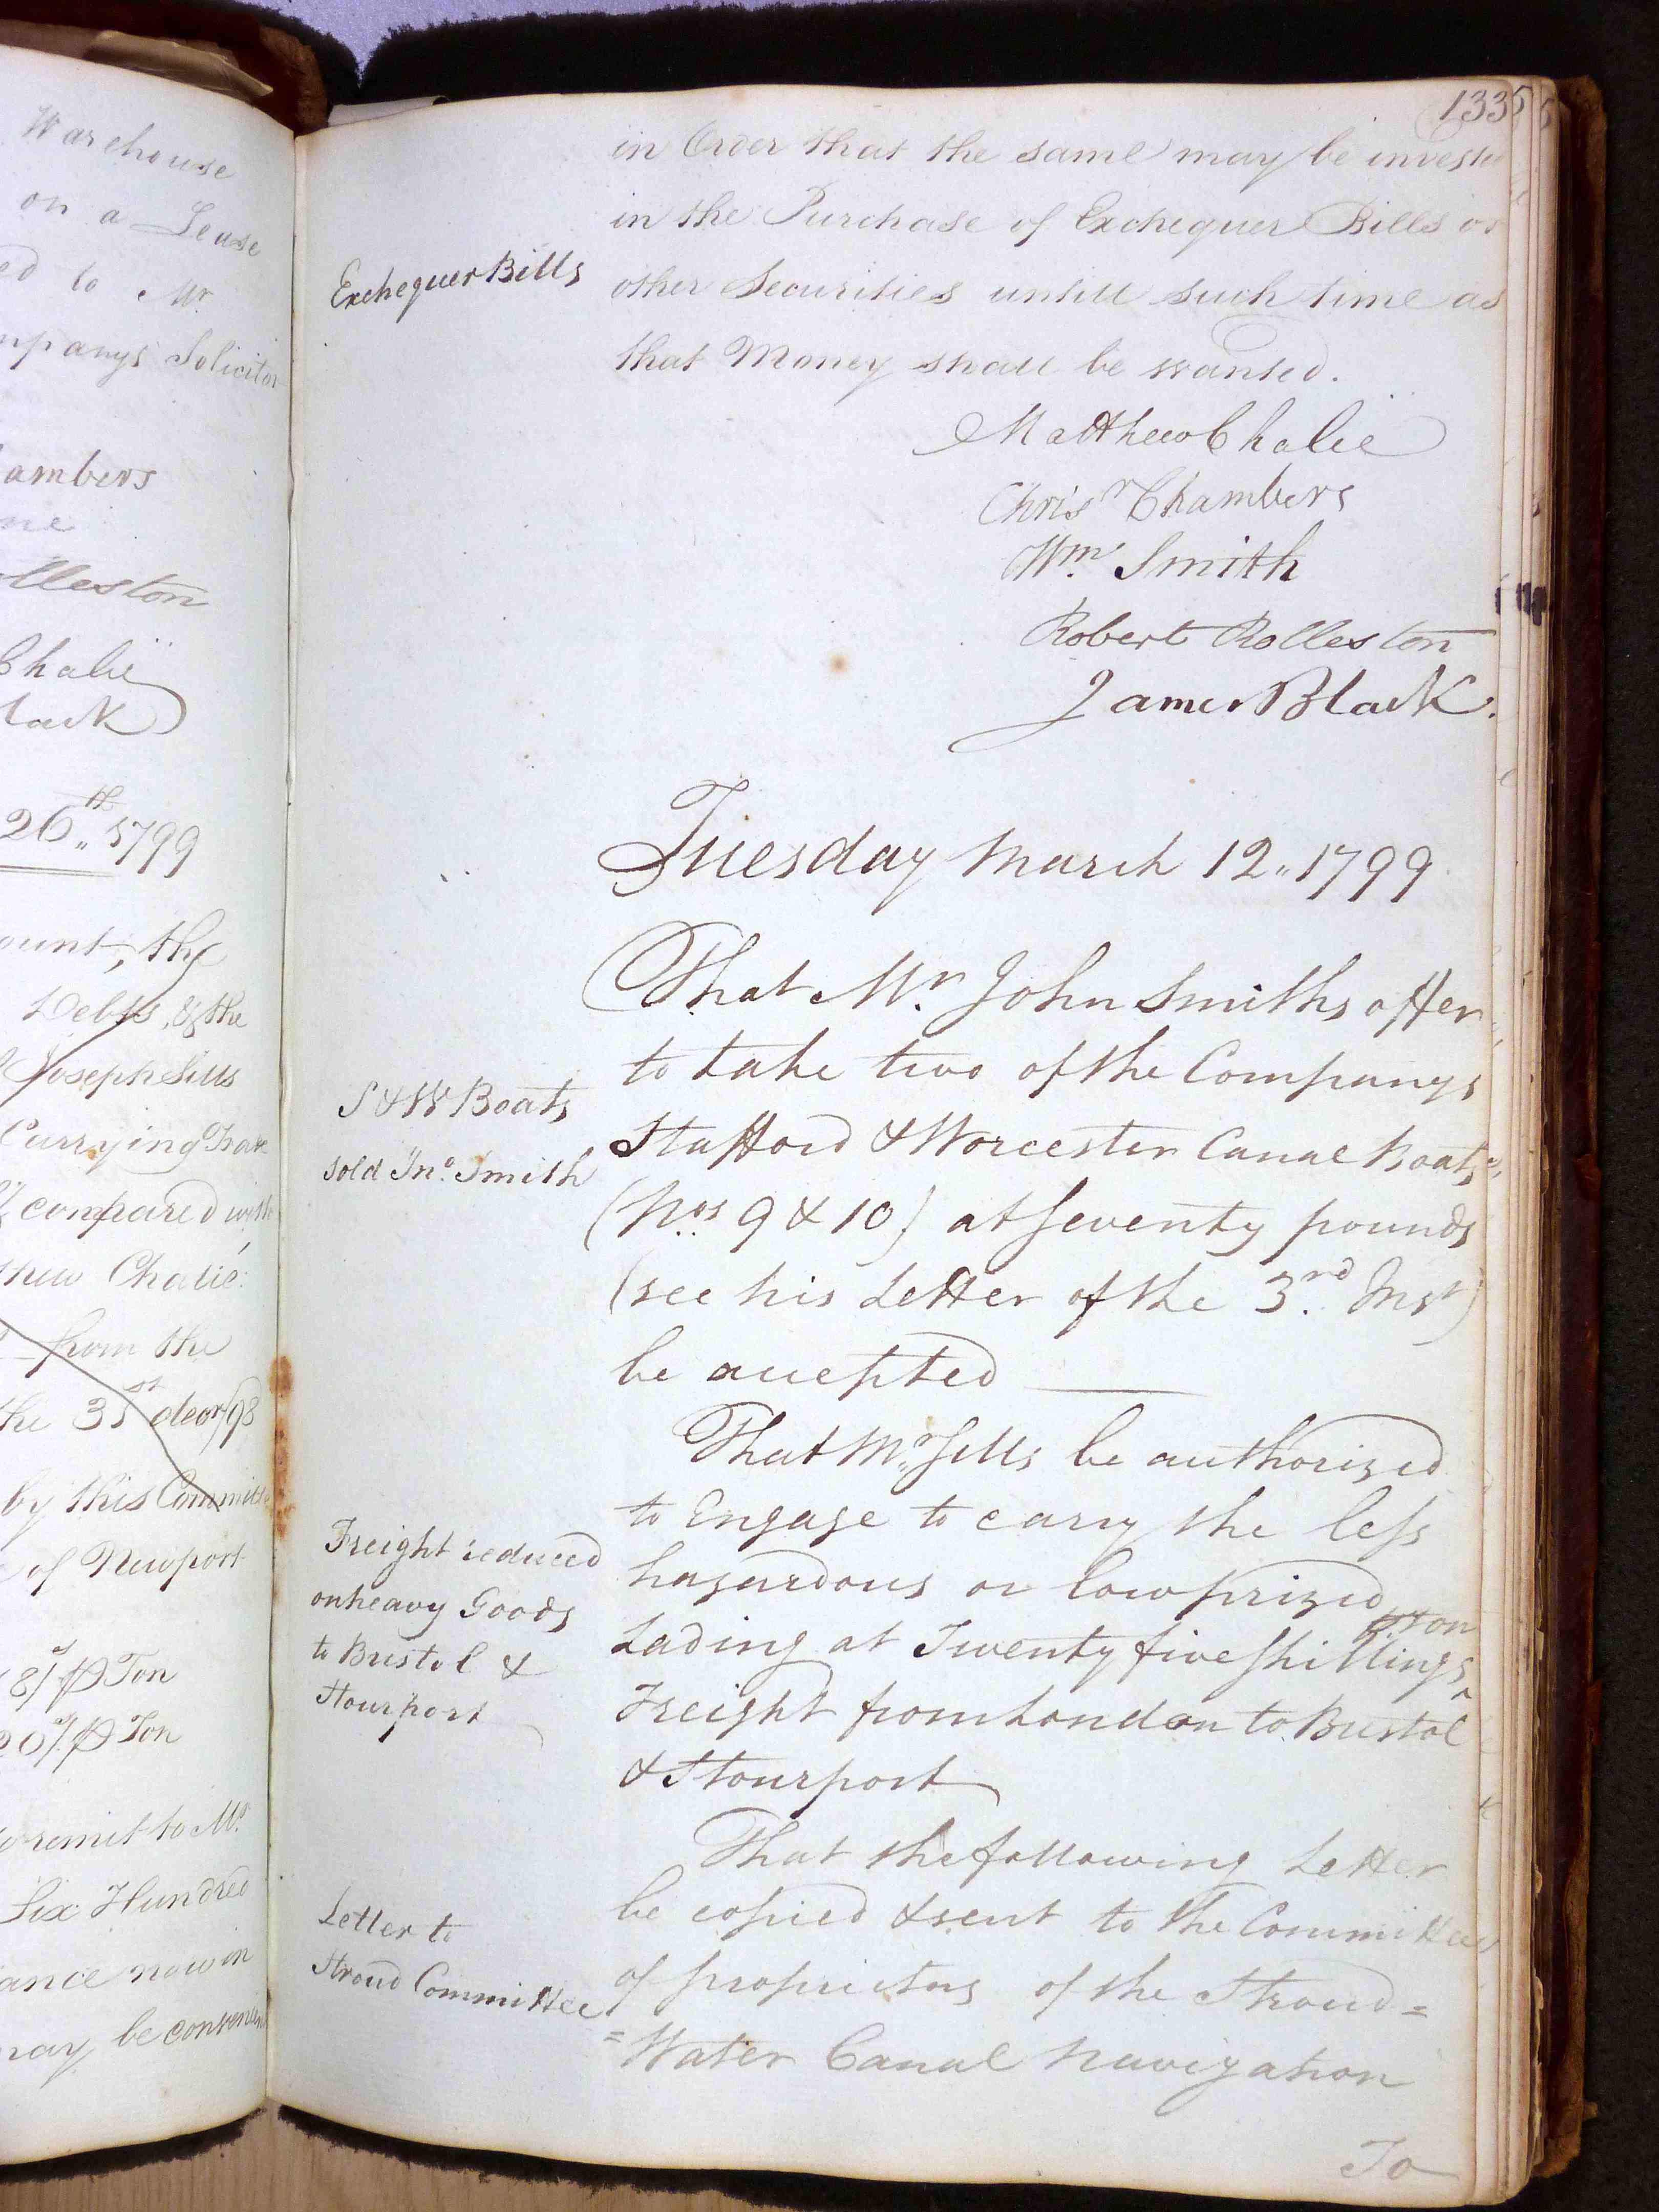 Warehouse
on a Lease
ed to Mr.
mpanys Solicitor
ambers
ne
lleston
Chalié
lack
26th 1799
ount, the
Debts, & the
Joseph Sills
Carrying Trade
compared with
thew Chalié
from the
the 31st decr/98
by this Committee
of Newport
18/ ⅌ Ton
20/ ⅌ Ton
remit to Mr.
Six Hundred
ance now in
may be convenient
1335
in Order that the same may be invested
in the Purchase of Exchequer Bills or
Exchequer Bills
other Securities untill such time as
that Money shall be wanted.
Matthew Chalié
Chrisr Chambers
Wm. Smith
Robert Rolleston
James Black.
Tuesday March 12.. 1799
That Mr. John Smiths offer
to take two of the Companys
S & W Boats
sold Jno. Smith
Stafford & Worcester Canal Boats,
(Nos 9 & 10) at Seventy pounds
(see his Letter of the 3rd. Inst)
be accepted
That Mr. Sills be authorized
to Engage to carry the less
Freight reduced
on heavy Goods
to Bristol &
Stourport
hazardous or low prized
⅌ ton
Lading at Twenty five Shillings ^
Freight from London to Bristol
& Stourport
That the following Letter
Letter to
Stroud Committee
be copied & sent to the Committee
of proprietors of the Stroud=
=Water Canal Navigation
To